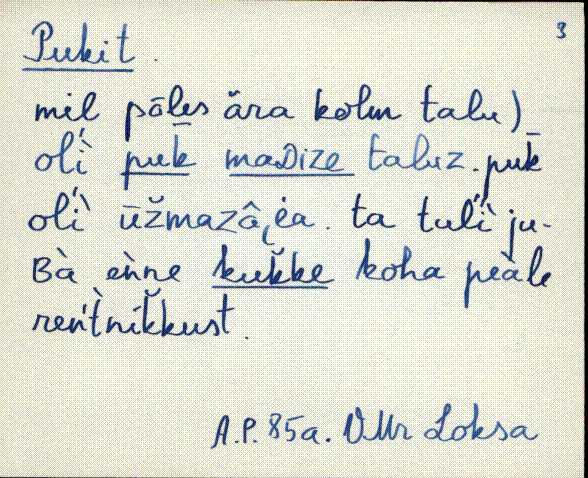 3
Pukit.
mil pōles ǟra kolm talu)
olì puk̄ maDize taluz. puk̄
olì ūžmazâ, ėa. ta tuĺì ju-
Bà eǹne kuk̆ke koha peàle
reńt̀nik̆kust.
A.P. 85a. VMr Loksa